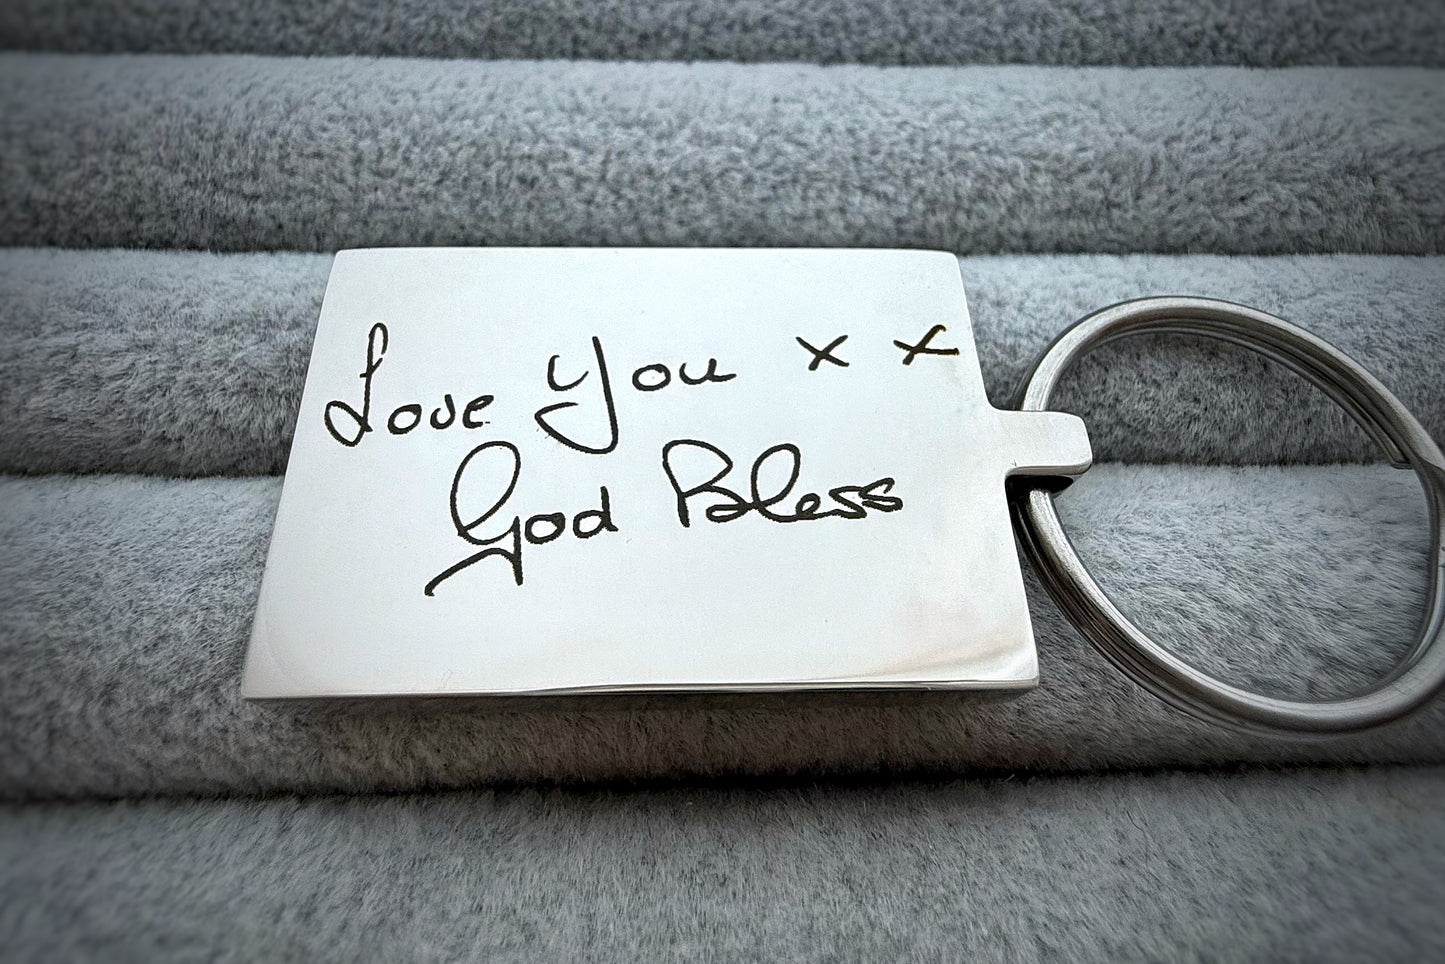 Love You x x
God Bless